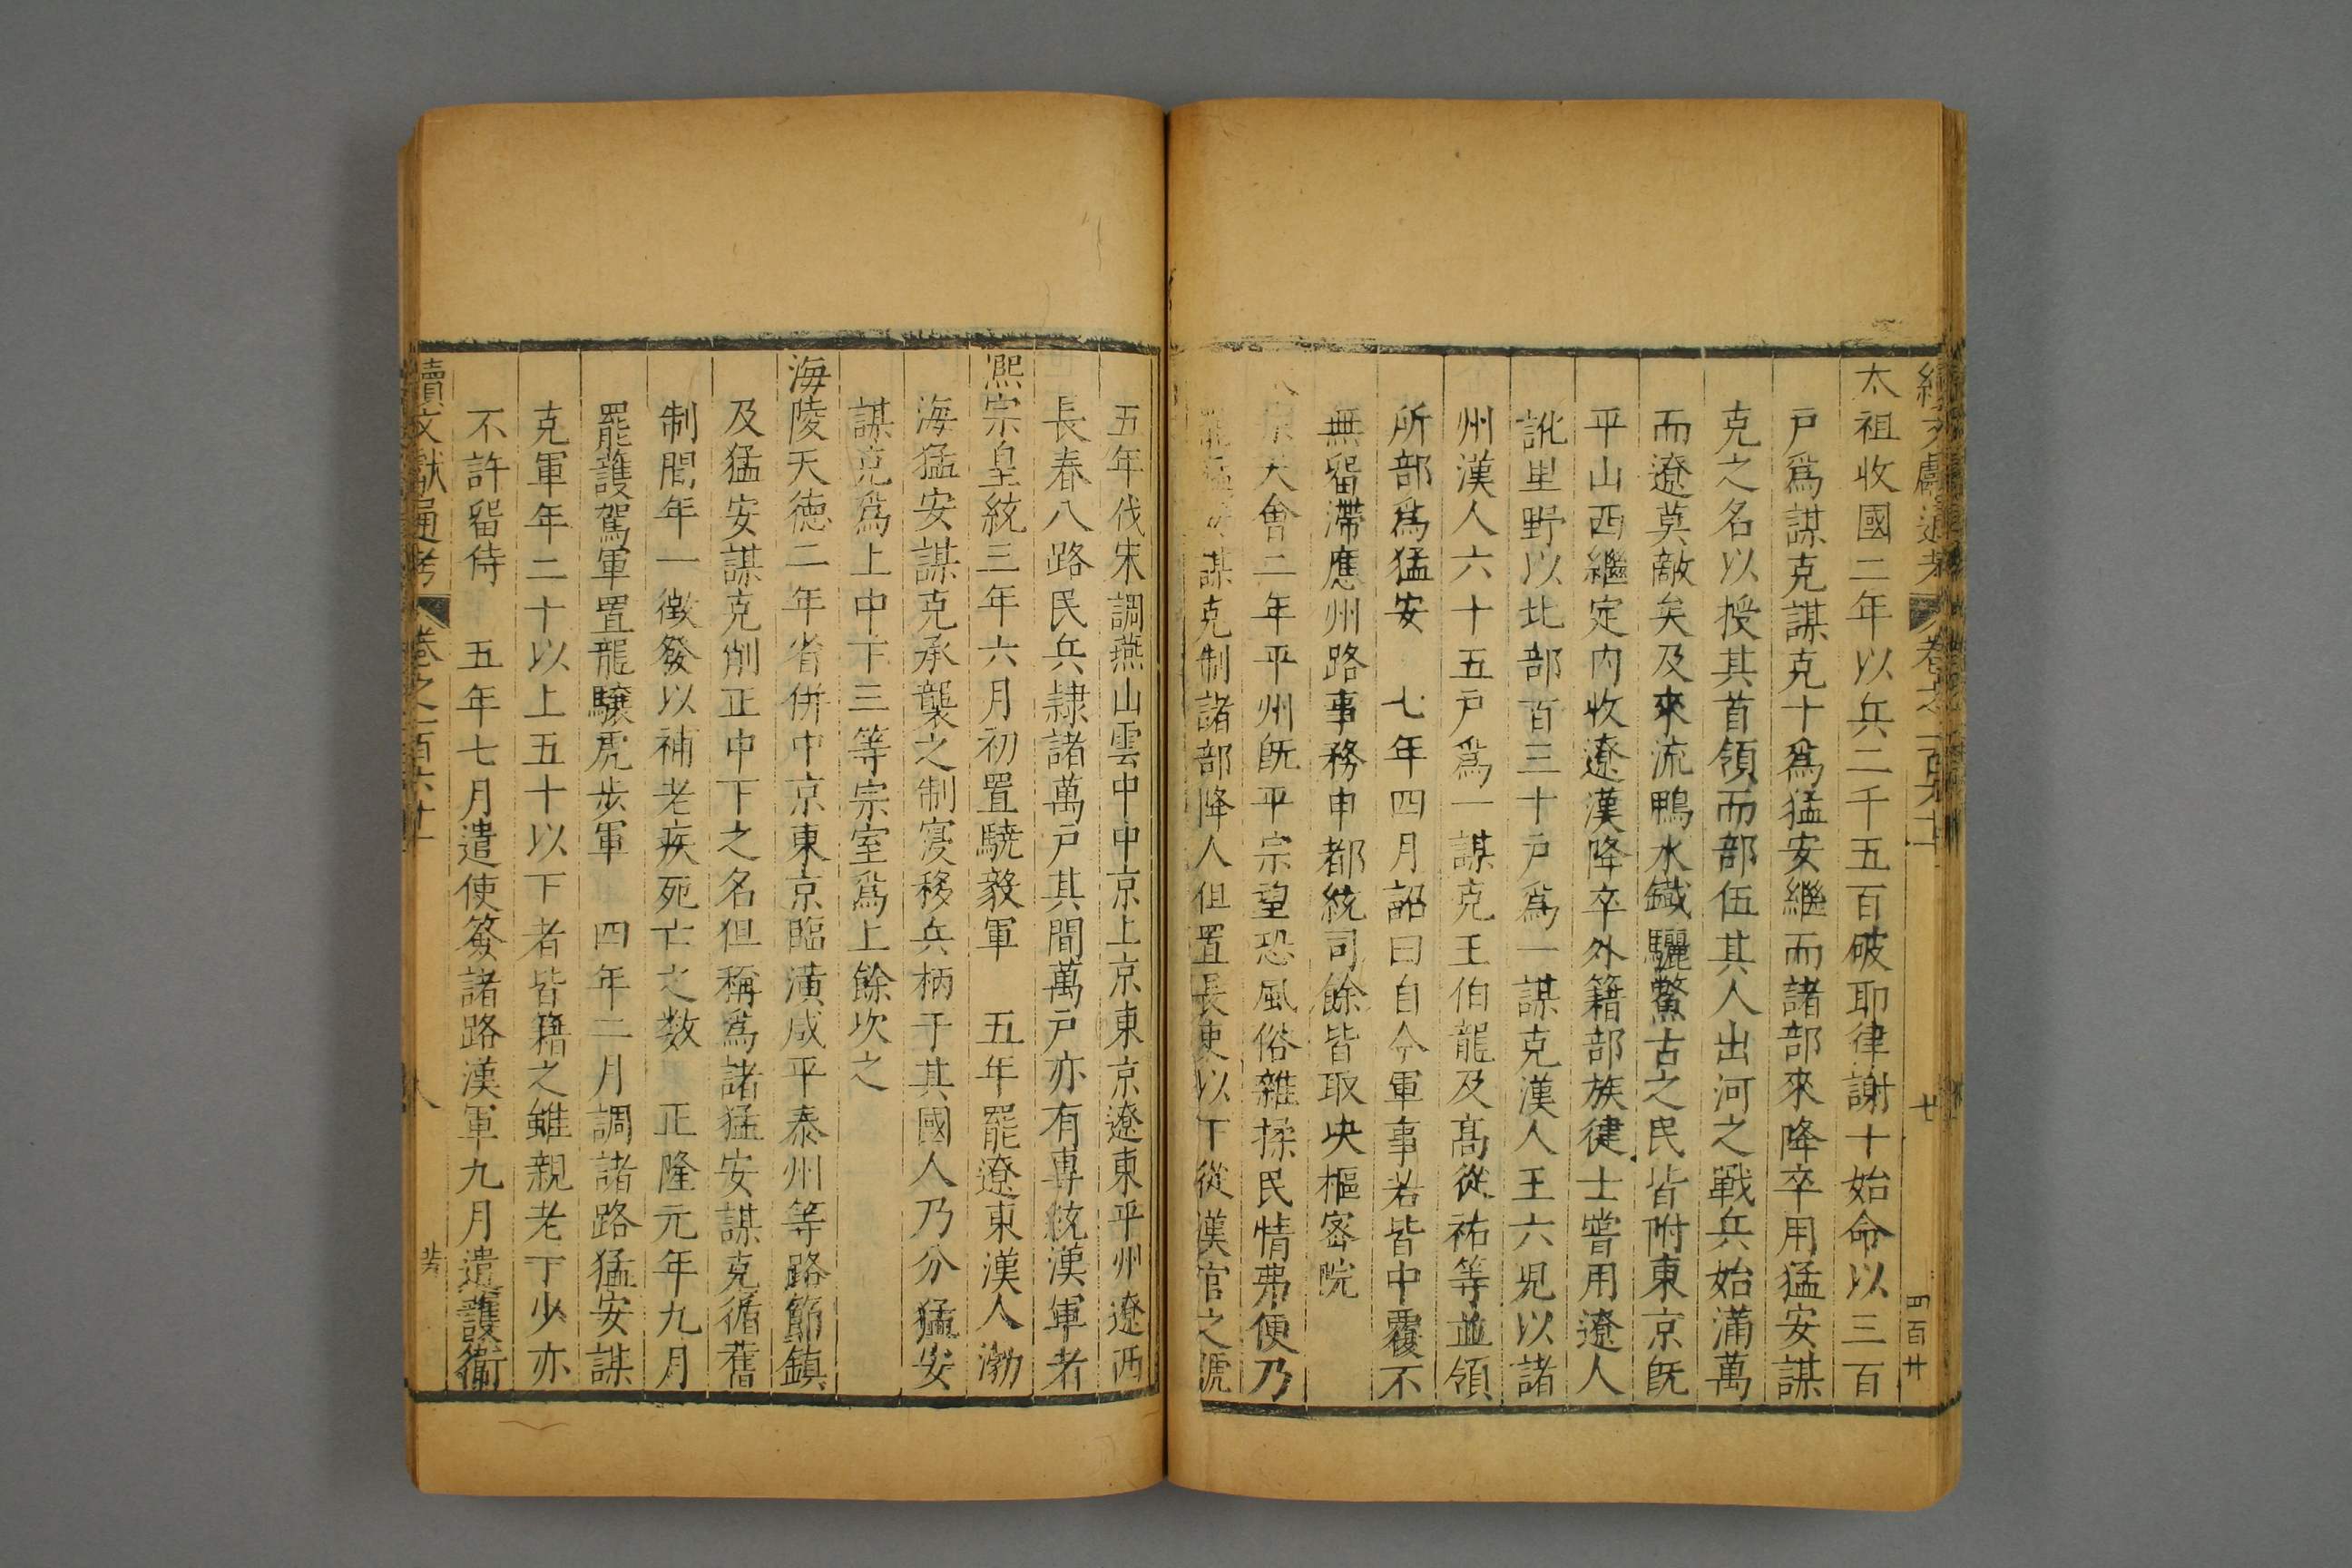 太祖收國二年以兵二千五百破耶律謝十始命以三百
戸爲謀克謀克十爲猛安繼而諸部來降卒用猛安謀
克之名以授其首領而部伍其人出河之戰兵始滿萬
而遼莫敵矣及來流鴨水鐵驪鱉古之民皆附東京既
平山西繼定内收遼漢降卒外籍部族健士嘗用遼人
訛里野以北部百三十戸爲一謀克漢人王六兒以諸
州漢人六十五戸爲一謀克王伯龍及髙從祐等並領
所部爲猛安 七年四月詔曰自今軍事若皆中覆不
無留滯應州路事務申都統司餘皆取决樞宻院
大會二年平州既平宗望恐風俗雜揉民情弗便乃
謀克制諸部降人但置長吏以下從漢官之號
五年伐宋調燕山雲中中京上京東京遼東平州遼西
長春八路民兵隷諸萬戸其間萬戸亦有專統漢軍者
熙宗皇統三年六月初置驍毅軍 五年罷遼東漢人渤
海猛安謀克承襲之制寖移兵柄于其國人乃分猛安
謀克爲上中下三等宗室爲上餘次之
海陵天德二年省併中京東京臨潢咸平泰州等路節鎮
及猛安謀克削正中下之名但稱爲諸猛安謀克循舊
制間年一徵發以補老疾死亡之数 正隆元年九月
罷護駕軍置龍驤虎步軍 四年二月調諸路猛安謀
克軍年二十以上五十以下者皆籍之雖親老丁少亦
不許留侍 五年七月遣使簽諸路漢軍九月遣護衛
續文獻通考 卷之一百六十